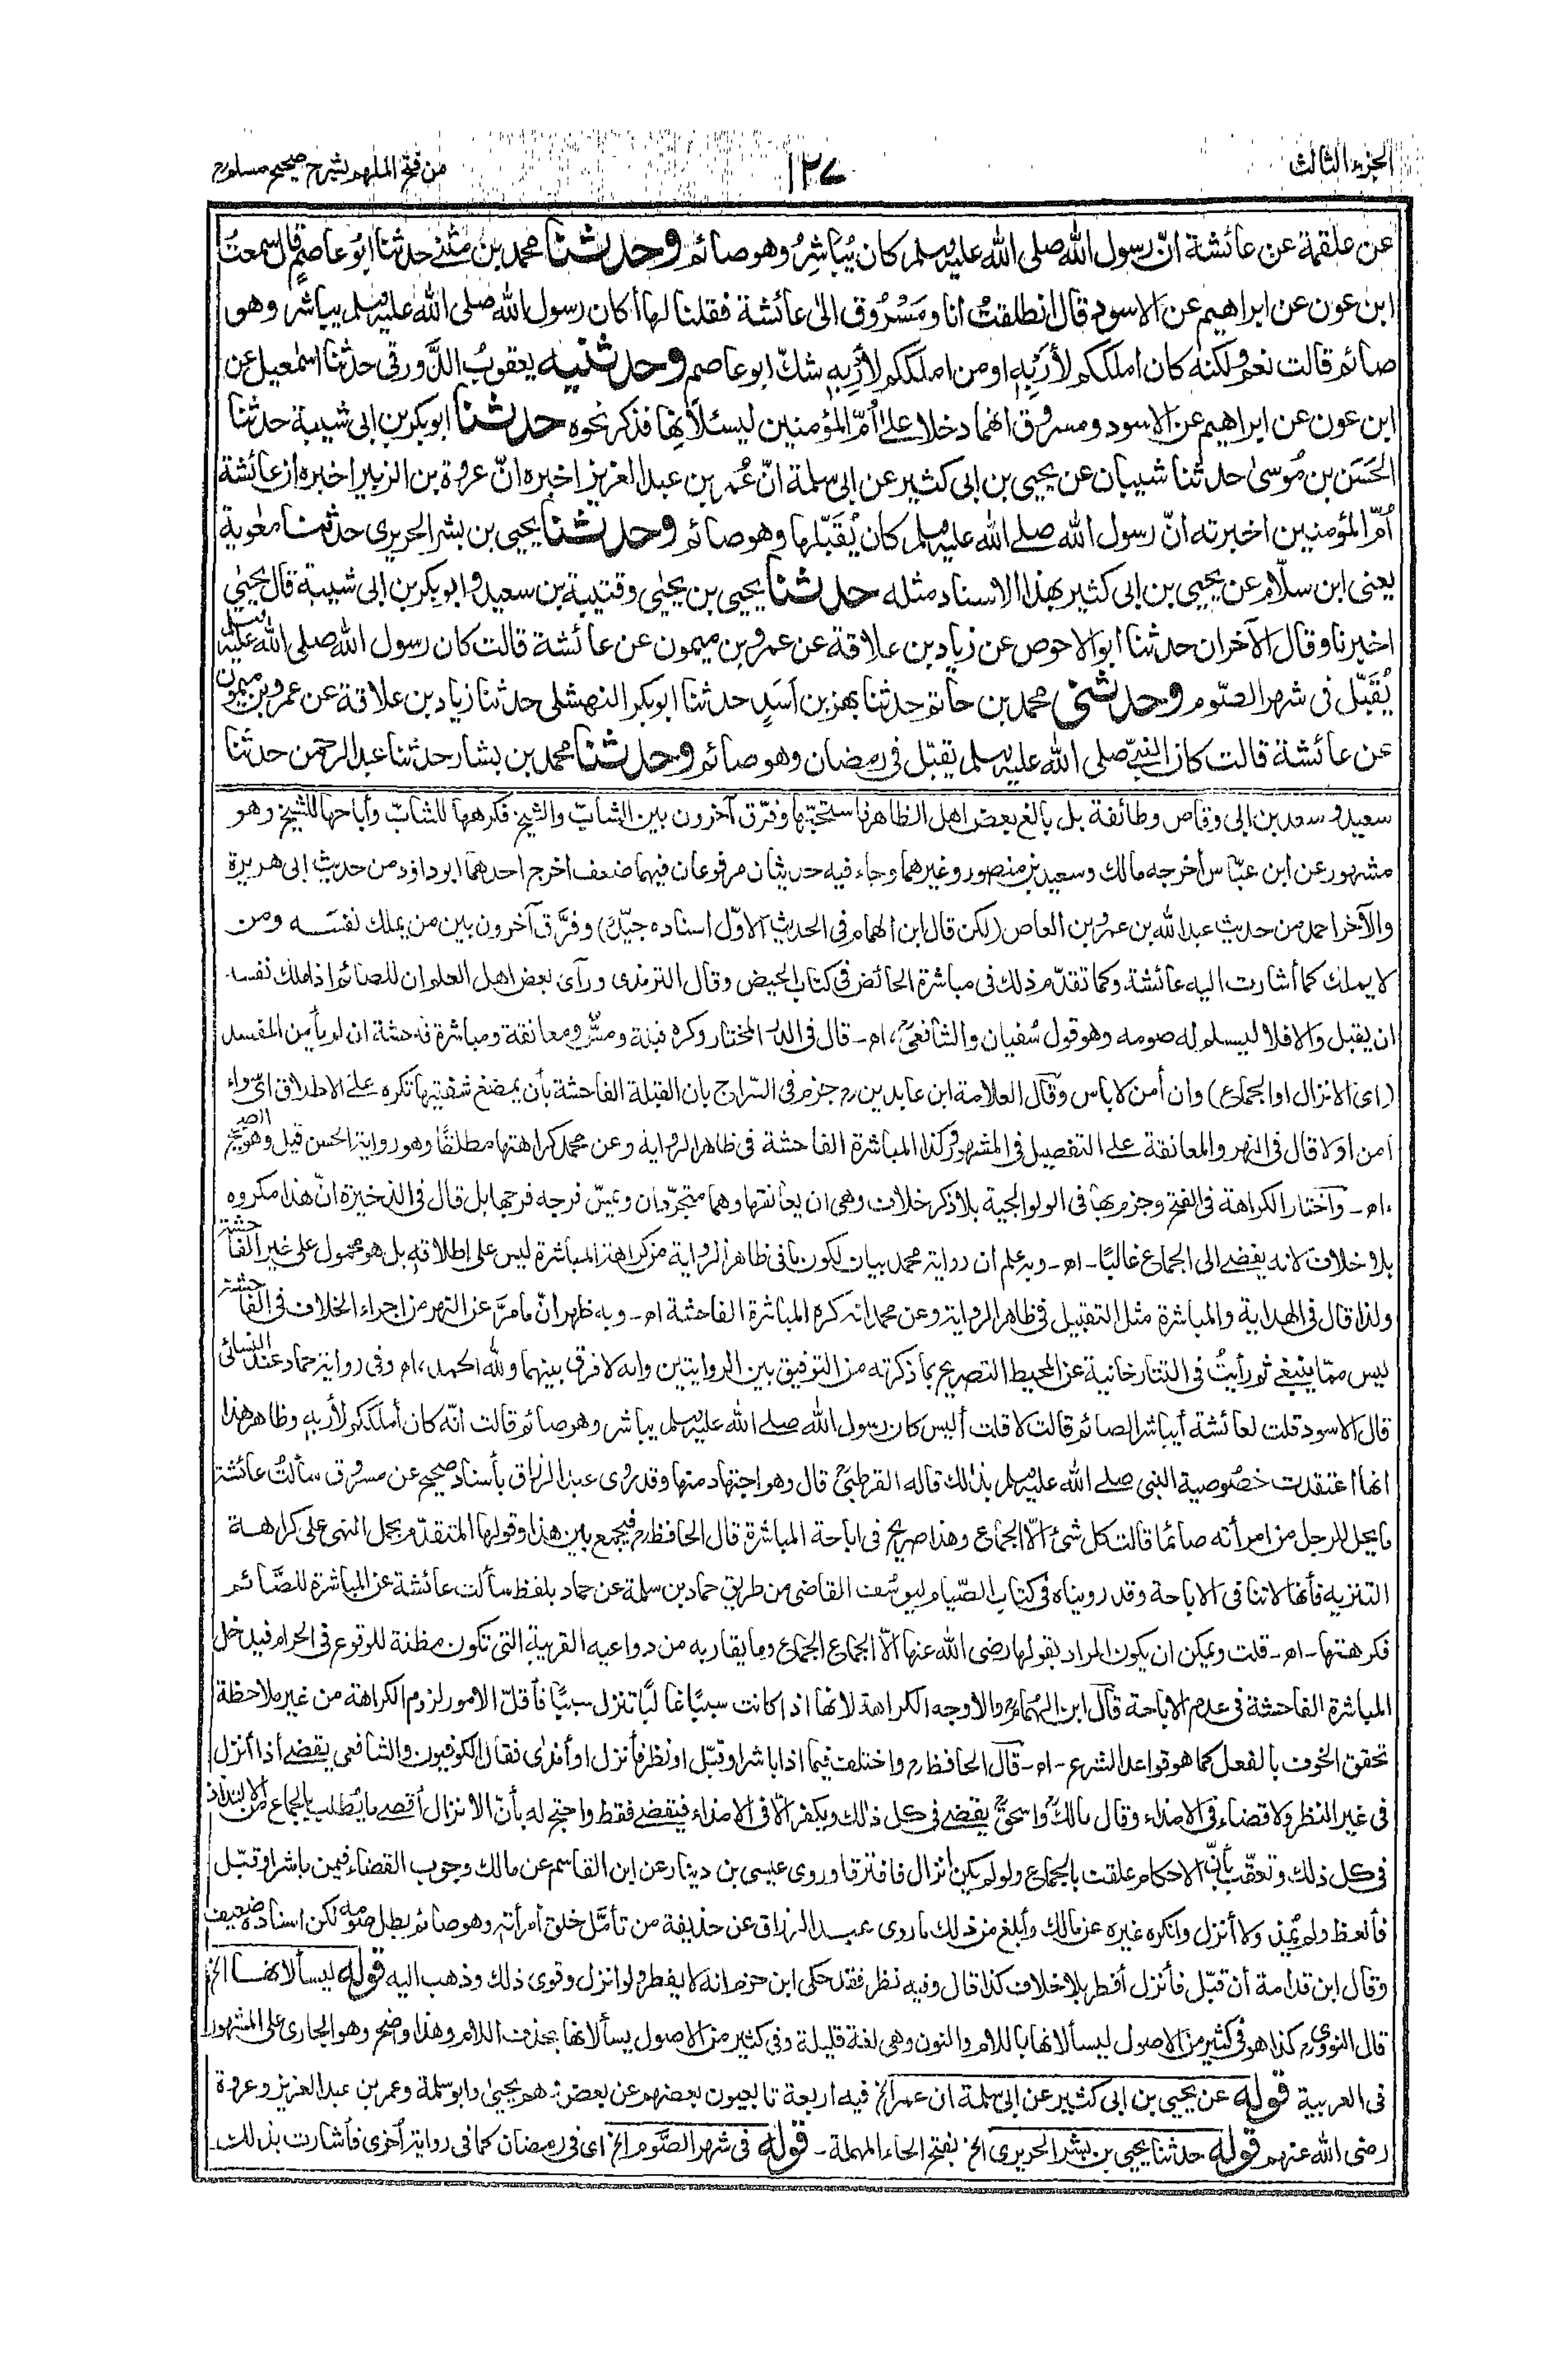 الجزء الثالث
١٢٧
من فتح الملهم بشرح صحيح مسلم
عن علقمة عن عائشة انّ رسول الله صلى الله عليه وسلم كان يُباشِرُ وهو صائم وحدثنا محمد بن مثنى حدثنا ابو عاصم قال سمعتُ
ابن عون عن ابراهيم عن الاسود قال انطلقتُ انا ومَسْرُوق الى عائشة فقلنا لها أكان رسول الله صلى الله عليه وسلم يباشر وهو
صائم قالت نعم ولكنه كان املككم لأربِه او من املككم لأربِه شكّ ابو عاصم وحدثنيه يعقوبُ الدَّورقى حدثنا اسمٰعيل عن
ابن عون عن ابراهيم عن الاسود ومسروق انهما دخلا على أمّ المؤمنين ليسئلاَنِها فذكر نحوه حدثنا ابو بكر بن ابى شيبة حدثنا
الحَسَن بن مُوسىٰ حدثنا شيبان عن يحيى بن ابى كثير عن ابى سلمة انّ عُمر بن عبد العزيز اخبره انّ عروة بن الزبير اخبره ان عائشة
أمّ المؤمنين اخبرته انّ رسول الله صلى الله عليه وسلم كان يُقَبّلها وهو صائم وحدثنا يحيى بن بشر الحريرى حدثنا معٰوية
يعنى ابن سلّام عن يحيى بن ابى كثير بهذا الاسناد مثله حدثنا يحيى بن يحيٰى وقتيبة بن سعيد وابو بكر بن ابى شيبة قال يحيٰى
اخبرنا وقال الآخران حدثنا ابو الاحوص عن زياد بن علاقة عن عمرو بن ميمون عن عائشة قالت كان رسول الله صلى الله عليه وسلم
يُقَبّل فى شهر الصّوم وحدثنى محمد بن حاتم حدثنا بهز بن أسَدٍ حدثنا ابو بكر النهشلى حدثنا زياد بن علاقة عن عمرو بن ميمون
عن عائشة قالت كان النبيّ صلى الله عليه وسلم يقبّل فى رمضان وهو صائم وحدثنا محمد بن بشار حدثنا عبد الرحمٰن حدثنا
سعيد وسعد بن ابى وقاص وطائفة بل بالغ بعض اهل الظاهر فاستحبّها وفرّق آخرون بين الشابّ والشيخ فكرهها للشابّ وأباحها للشيخ وهو
مشهور عن ابن عبّاس أخرجه مالك وسعيد بن منصور وغيرهما وجاء فيه حديثان مرفوعان فيهما ضعف اخرج احدهما ابوداؤد من حديث ابى هريرة
والآخر احمد من حديث عبد الله بن عمرو بن العاص (لكن قال ابن الهمام فى الحديث الاوّل اسناده جيّد) وفرَّق آخرون بين من يملك نفسَه ومن
لا يملك كما أشارت اليه عائشة وكما تقدّم ذلك فى مباشرة الحائض فى كتاب الحيض وقال الترمذى ورآى بعض اهل العلم ان للصائم اذا ملك نفسه
ان يقبل والا فلا ليسلم له صومه وهو قول سُفيان والشافعىؒ، اه‍ - قال فى الدر المختار وكره قبلة ومسٌّ ومعانقة ومباشرة فاحشة ان لم يأمن المفسد
(اى الانزال او الجماع) وان أمن لا باس وقال العلامة ابن عابدينؒ جزم فى السّراج بان القبلة الفاحشة بأن يمضغ شفتيها تكره على الاطلاق اى سواء
امن اولا قال فى النهر والمعانقة على التفصيل فى المشهور وكذا المباشرة الفاحشة فى ظاهر الرواية وعن محمد كراهتها مطلقًا وهو رواية الحسن قيل وهو الصحيح
اه‍ - واختار الكراهة فى الفتح وجزم بها فى الولوالجية بلا ذكر خلاف وهى ان يعانقها وهما متجرّدان ويمسّ فرجه فرجها بل قال فى الذخيرة انّ هذا مكروه
بلا خلاف لانه يفضى الى الجماع غالبًا - اه‍ - وبه علم ان رواية محمد بيان لكون ما فى ظاهر الرواية من كراهة المباشرة ليس على إطلاقه بل هو محمول على غير الفاحشة
ولذا قال فى الهداية والمباشرة مثل التقبيل فى ظاهر الرواية وعن محمد انه كره المباشرة الفاحشة اه‍ - وبه ظهر انّ ما مرَّ عن النهر من اجراء الخلاف فى الفاحشة
ليس ممّا ينبغى ثم رأيتُ فى التتارخانية عن المحيط التصريح بما ذكرته من التوفيق بين الروايتين وانه لا فرق بينهما ولله الحمد، اه‍ وفى رواية حماد عند النسائى
قال الاسود قلت لعائشة أيباشر الصائم قالت لا قلت أليس كان رسول الله صلى الله عليه وسلم يباشر وهو صائم قالت انّه كان أملككم لأربه وظاهر هذا
انها اعتقدت خصُوصية النبى صلى الله عليه وسلم بذلك قاله القرطبىؒ قال وهو اجتهاد منها وقد روى عبد الرزاق بأسناد صحيح عن مسروق سألتُ عائشة
ما يحل للرجل من امرأته صائما قالت كل شئ الّا الجماع وهذا صريح فى اباحة المباشرة قال الحافظؒ فيجمع بين هذا وقولها المتقدّم بحمل النهى على كراهة
التنزيه فأنها لا تنافى الاباحة وقد رويناه فى كتاب الصّيام ليوسُف القاضى من طريق حماد بن سلمة عن حماد بلفظ سألت عائشة عن المباشرة للصَّائم
فكرهتها - اه‍ - قلت ويمكن ان يكون المراد بقولها رضى الله عنها الّا الجماع الجماع وما يقاربه من دواعيه القريبة التى تكون مظنة للوقوع فى الحرام فيدخل
المباشرة الفاحشة فى عدم الاباحة قال ابن الهمامؒ والاوجه الكراهة لانها اذا كانت سببًا غالبًا تنزل سببًا فأقلّ الامور لزوم الكراهة من غير ملاحظة
تحقق الخوف بالفعل كما هو قواعد الشرع - اه‍ - قال الحافظؒ واختلف فيما اذا باشر او قبّل او نظر فأنزل او أمذى فقال الكوفيون والشافعى يقضى اذا أنزل
فى غير النظر ولا قضاء فى الامذاء وقال مالكؒ واسحٰقؒ يقضى فى كل ذلك ويكفر الّا فى الامذاء فيقضى فقط واحتج له بأنّ الانزال أقصى ما يُطلب بالجماع من الالتذاذ
فى كل ذلك وتعقّب بأنّ الاحكام علقت بالجماع ولو لم يكن أنزال فافترقا وروى عيسى بن دينار عن ابن القاسم عن مالك وجوب القضاء فيمن باشر او قبّل
فأنعظ ولم يُمذِ ولا أنزل وانكره غيره عن مالك وأبلغ من ذلك ما روى عبد الرزاق عن حذيفة من تأمّل خلق امرأته وهو صائم بطل صومه لكن اسناده ضعيف
وقال ابن قدامة أن قبّل فأنزل أفطر بلا خلاف كذا قال وفيه نظر فقد حكى ابن حزم انه لا يفطر ولو انزل وقوى ذلك وذهب اليه قوله ليسألانها الخ
قال النووىؒ كذا هو فى كثير من الاصول ليسألانها باللام والنون وهى لغة قليلة وفى كثير من الاصول يسألانها بحذف اللام وهذا واضح وهو الجارى على المشهور
فى العربية قوله عن يحيى بن ابى كثير عن ابى سلمة ان عمر الخ فيه اربعة تابعيون بعضهم عن بعض: هم يحيىٰ وابو سلمة وعمر بن عبد العزيز وعروة
رضى الله عنهم قوله حدثنا يحيى بن بشر الحريرى الخ بفتح الحاء المهملة - قوله فى شهر الصَّوم الخ اى فى رمضان كما فى رواية أخرى فأشارت بذلك